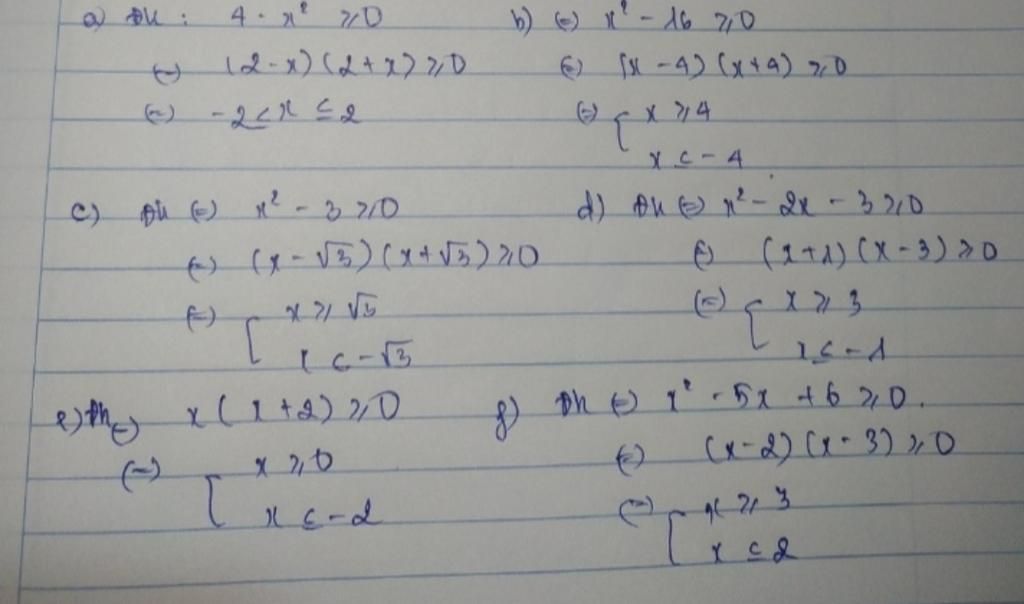 a) ĐK : 4 - x² ≥ 0
(=) (2 - x) (2 + x) ≥ 0
(=) -2 ≤ x ≤ 2
b) (=) x² - 16 ≥ 0
(=) (x - 4) (x + 4) ≥ 0
(=) [ x ≥ 4
x ≤ - 4
c) ĐK (=) x² - 3 ≥ 0
(=) (x - √3) (x + √3) ≥ 0
(=) [ x ≥ √3
x ≤ -√3
d) ĐK (=) x² - 2x - 3 ≥ 0
(=) (x + 1) (x - 3) ≥ 0
(=) [ x ≥ 3
x ≤ - 1
e) ĐK (=) x ( x + 2) ≥ 0
(=) [ x ≥ 0
x ≤ - 2
f) ĐK (=) x² - 5x + 6 ≥ 0.
(=) (x - 2) (x - 3) ≥ 0
(=) [ x ≥ 3
x ≤ 2